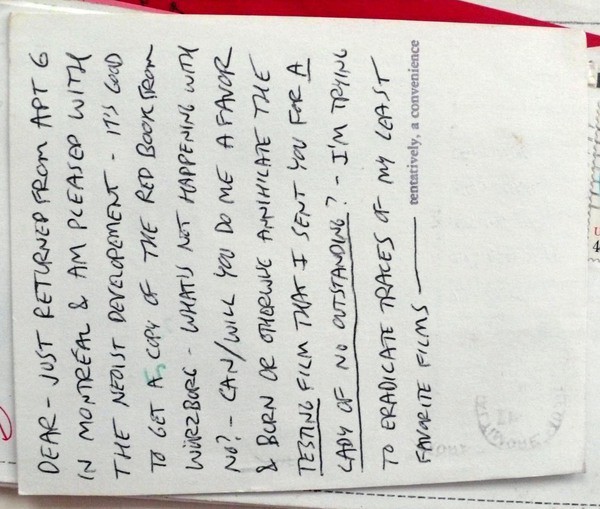 DEAR - JUST RETURNED FROM APT 6
IN MONTRÉAL & AM PLEASED WITH
THE NEOIST DEVELOPEMENT - IT'S GOOD
TO GET A COPY OF THE RED BOOK FROM
WÜRZBURG - WHAT'S NOT HAPPENING WITH
NO? - CAN/WILL YOU DO ME A FAVOR
& BURN OR OTHERWISE ANNIHILATE THE
TESTING FILM THAT I SENT YOU FOR A
LADY OF NO OUTSTANDING? - I'M TRYING
TO ERADICATE TRACES OF MY LEAST
FAVORITE FILMS — tentatively, a convenience